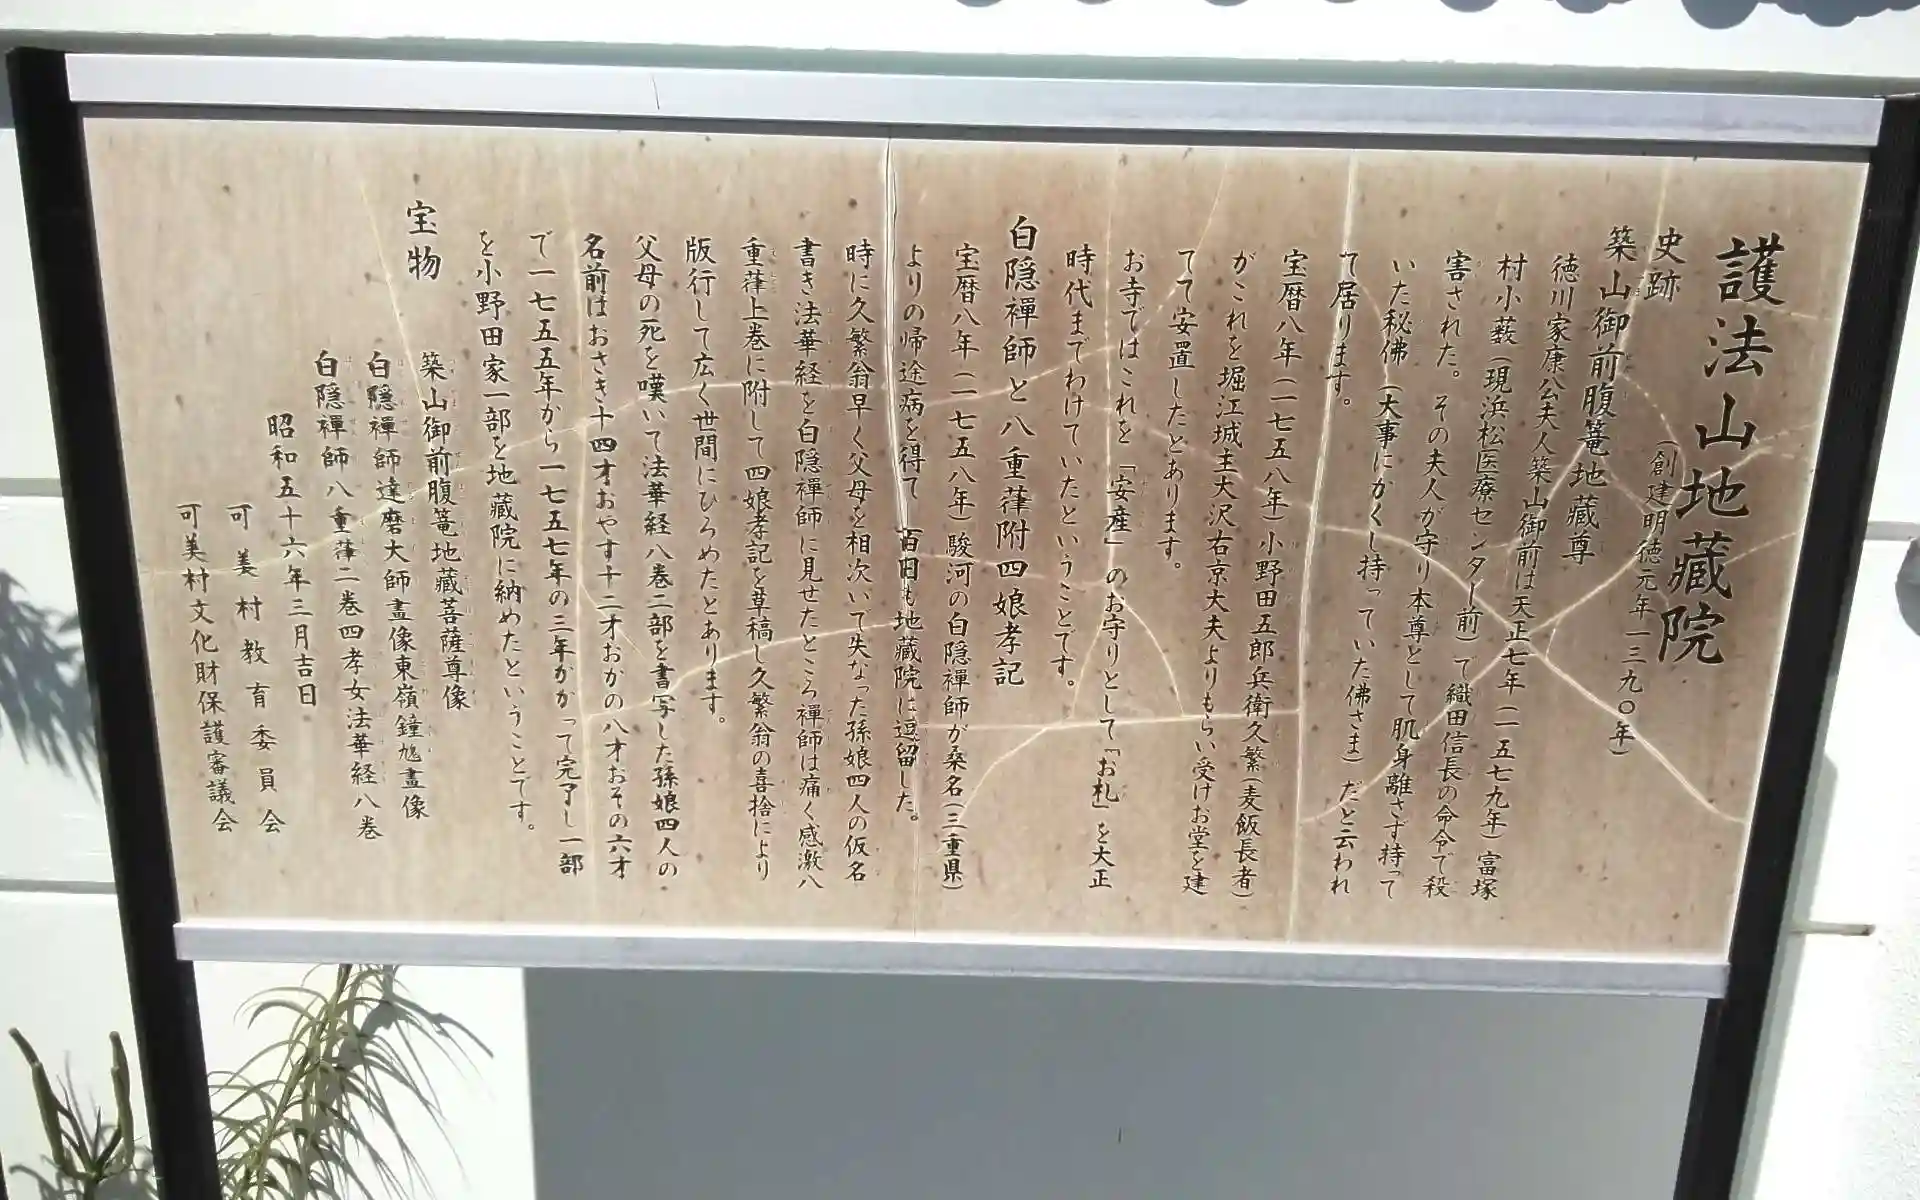 護法山地藏院
(創建明徳元年一三九〇年)
史跡
築山御前腹篭地蔵尊
徳川家康公夫人築山御前は天正七年(一五七九年)富塚
村小薮(現浜松医療センター前)で織田信長の命令で殺
害された。その夫人が守り本尊として肌身離さず持って
いた秘佛(大事にかくし持っていた佛さま)だと云われ
て居ります。
宝暦八年(一七五八年)小野田五郎兵衛久繁(麦飯長者)
がこれを堀江城主大沢右京大夫よりもらい受けお堂を建
てて安置したとあります。
お寺ではこれを「安産」のお守りとして「お札」を大正
時代までわけていたということです。
白隠禪師と八重葎附四娘孝記
宝暦八年(一七五八年)駿河の白隠禪師が桑名(三重県)
よりの帰途病を得て百日も地蔵院に逗留した。
時に久繁翁早く父母を相次いで失なった孫娘四人の仮名
書き法華経を白隠禪師に見せたところ禪師は痛く感激八
重葎上巻に附して四娘孝記を草稿し久繁翁の喜捨により
版行して広く世間にひろめたとあります。
父母の死を嘆いて法華経八巻二部を書写した孫娘四人の
名前はおさき十四才おやす十二才おかの八才おその六才
で一七五五年から一七五七年の三年かかって完了し一部
を小野田家一部を地蔵院に納めたということです。
宝物
築山御前腹篭地蔵菩薩尊像
白隠禪師達磨大師畫像東嶺鐘馗畫像
白隠禪師八重葎二巻四孝女法華経八巻
昭和五十六年三月吉日
可美村教育委員会
可美村文化財保護審議会